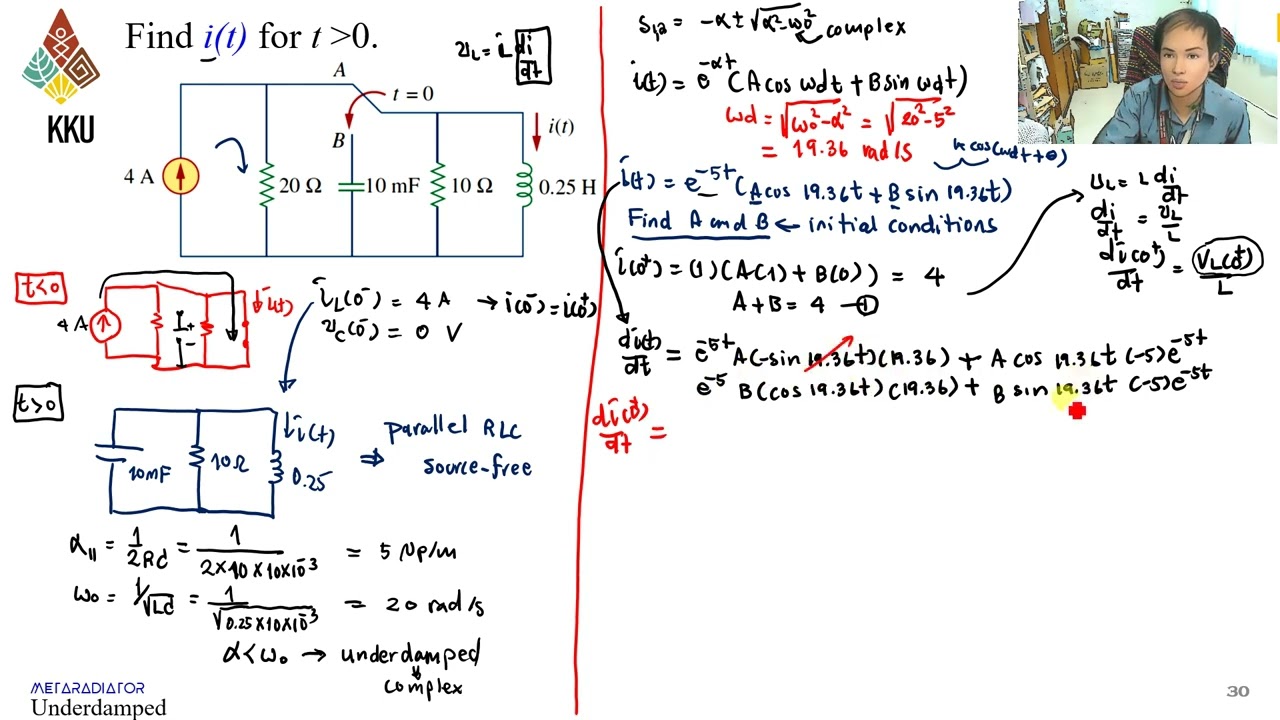 Find i(t) for t >0.
KKU
v_L = L di/dt
A
t = 0
B
i(t)
4 A
20 Ω
10 mF
10 Ω
0.25 H
t<0
4A
+
−
i(t)
i_L(0⁻) = 4 A → i(0⁻) = i(0⁺)
v_C(0⁻) = 0 V
t>0
10mF
10Ω
i(t)
0.25
⇒ parallel RLC
source-free
α₁₁ = 1/2RC = 1/2×10×10×10⁻³ = 5 Np/m
ω₀ = 1/√LC = 1/√0.25×10×10⁻³ = 20 rad/s
α<ω₀ → underdamped
complex
METARADIATOR
Underdamped
S₁,₂ = -α ± √α²-ω₀² complex
i(t) = e^-αt (A cos ωdt + B sin ωdt)
ωd = √ω₀²-α² = √20²-5²
= 19.36 rad/s
k cos(ωdt + θ)
i(t) = e^-5t (A cos 19.36t + B sin 19.36t)
Find A and B ← initial conditions
i(0⁺) = (1)(A(1) + B(0)) = 4
A+B = 4 —①
v_L = L di/dt
di/dt = v_L/L
di(0⁺)/dt = V_L(0⁺)/L
di(t)/dt = e^-5t A(-sin 19.36t)(19.36) + A cos 19.36t (-5)e^-5t
e^-5 B(cos 19.36t)(19.36) + B sin 19.36t (-5)e^-5t
di(0⁺)/dt =
30